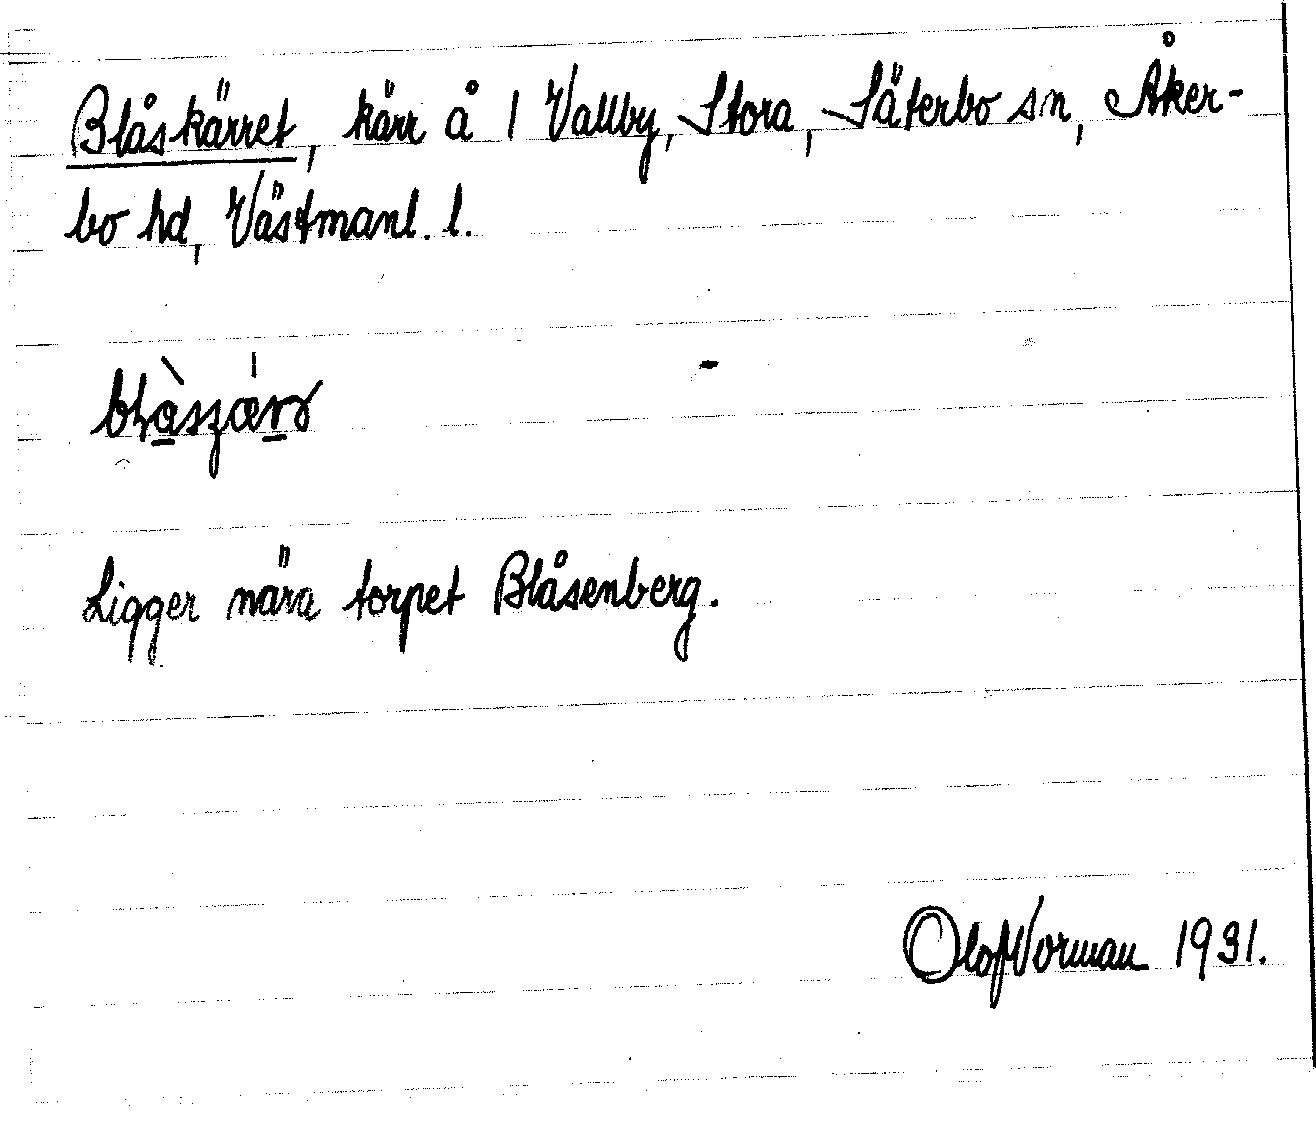 Blåskärret, kärr å 1 Vallby, Stora, Säterbo sn, Åker-
bo hd, Västmanl. l.
Ligger nära torpet Blåsenberg.
Olof Vorman 1931.